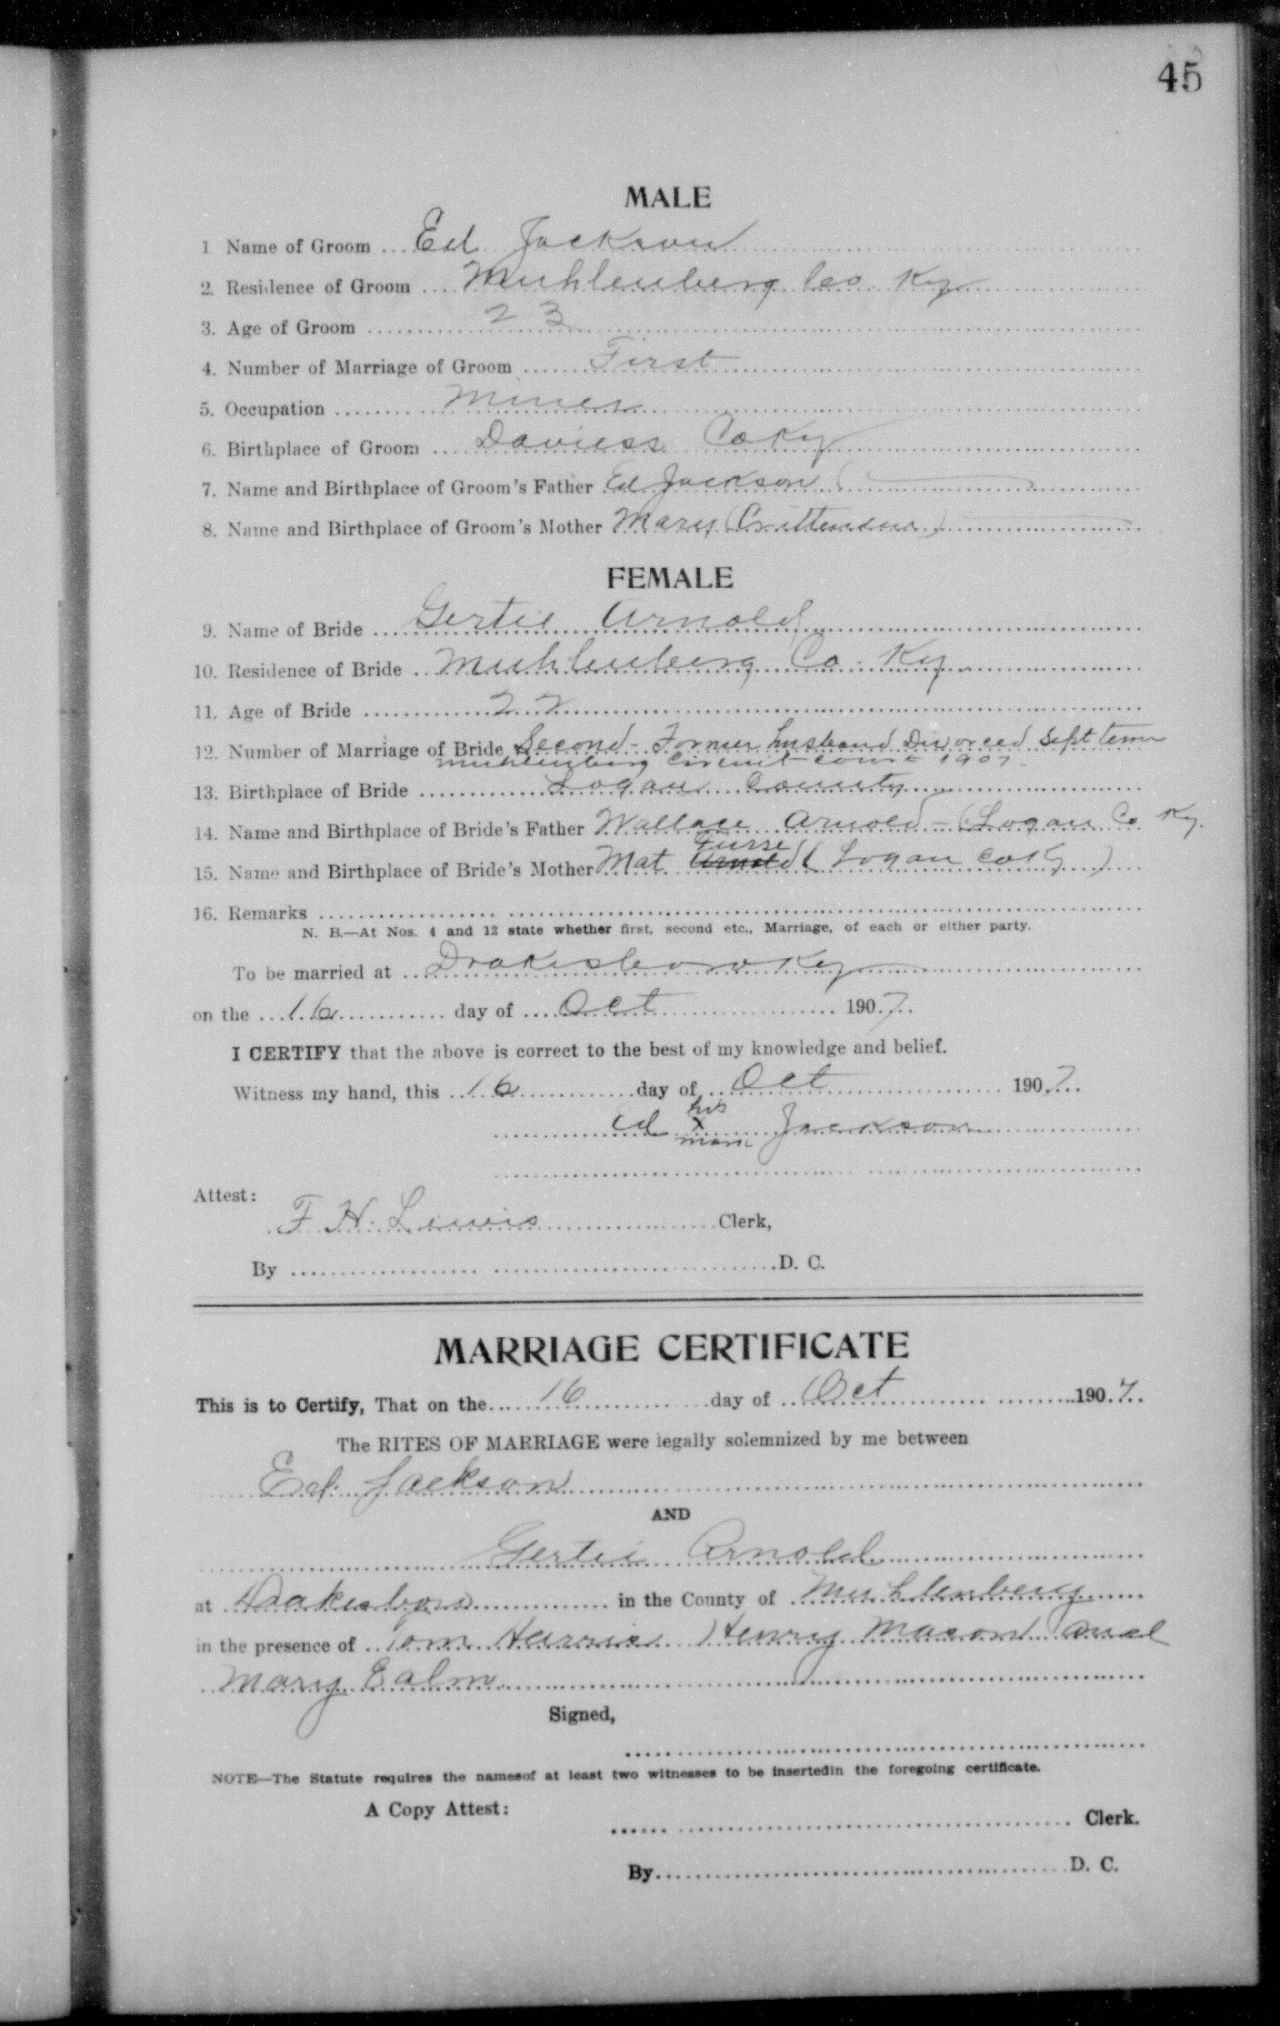 45
MALE
1. Name of Groom Ed Jackson
2. Residence of Groom Muhlenberg Co. Ky
3. Age of Groom 23
4. Number of Marriage of Groom First
5. Occupation Miner
6. Birthplace of Groom Daviess Co Ky
7. Name and Birthplace of Groom's Father Ed Jackson (
8. Name and Birthplace of Groom's Mother Mary (Crittenden)
FEMALE
9. Name of Bride Gertie Arnold
10. Residence of Bride Muhlenberg Co. Ky
11. Age of Bride 22
12. Number of Marriage of Bride Second - Former husband Divorced Sept term
Muhlenberg Circuit Court 1907
13. Birthplace of Bride Logan County
14. Name and Birthplace of Bride's Father Wallace Arnold - (Logan Co Ky.
15. Name and Birthplace of Bride's Mother Mat Arnold (Logan Co Ky)
16. Remarks
N. B.—At Nos. 4 and 12 state whether first, second etc., Marriage, of each or either party.
To be married at Drakesboro Ky
on the 16 day of Oct 1907
I CERTIFY that the above is correct to the best of my knowledge and belief.
Witness my hand, this 16 day of Oct 1907
his
Ed X Jackson
mark
Attest:
F. H. Lewis Clerk,
By D. C.
MARRIAGE CERTIFICATE
This is to Certify, That on the 16 day of Oct 1907.
The RITES OF MARRIAGE were legally solemnized by me between
Ed. Jackson
AND
Gertie Arnold
at Drakesboro in the County of Muhlenberg
in the presence of Tom Harris Henry Mason and
Mary
Signed,
NOTE—The Statute requires the namesof at least two witnesses to be insertedin the foregoing certificate.
A Copy Attest:
Clerk.
By D. C.